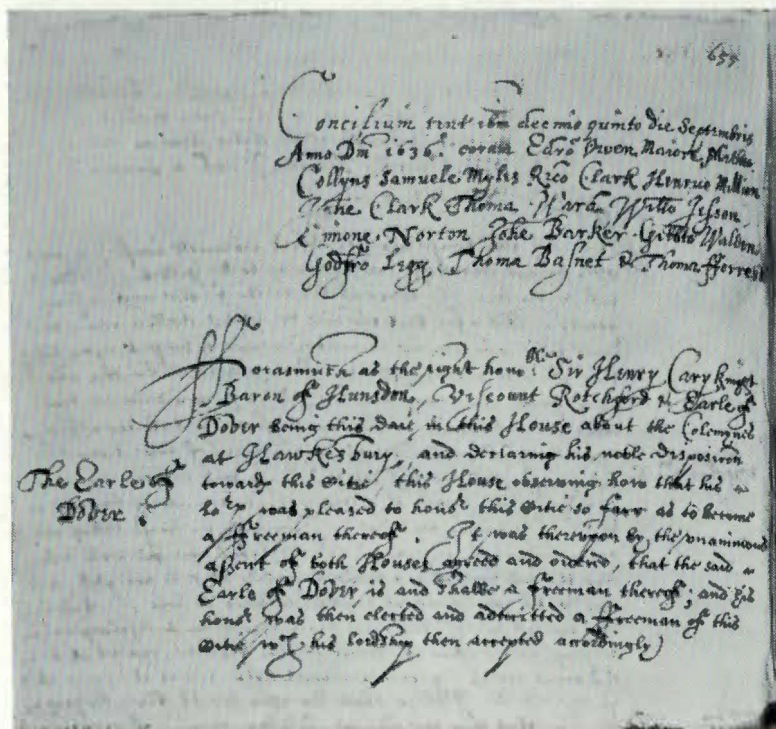 657
Concilium tent ibm decimo quinto die Septembris
Anno Dm 1636. coram Edro Owen Maiore, Mathei
Collyns Samuele Myles Rico Clark Henrico Million
Johe Clark Thoma Ward Willo Jesson
Simone Norton Johe Barker Gilbto Walden
Godfro Legg Thoma Basnet & Thoma fforrest
Fforasmuch as the right honoble Sir Henry Cary knight
Baron of Hunsdon, Viscount Rotchford & Earle of
Dover being this daie in this House about the Colemynes
at Hawkesbury, and declaring his noble disposicion
The Earle of
Dover.
towards this Citie, this House observing how that his
lopp was pleased to honor this Citie so farr as to become
a ffreeman thereof. It was thereupon by the unanimous
assent of both Houses agreed and ordered, that the said
Earle of Dover, is and shalbe a freeman thereof; and his
honor was then elected and admitted a ffreeman of this
Citie, wch his lordship then accepted accordingly